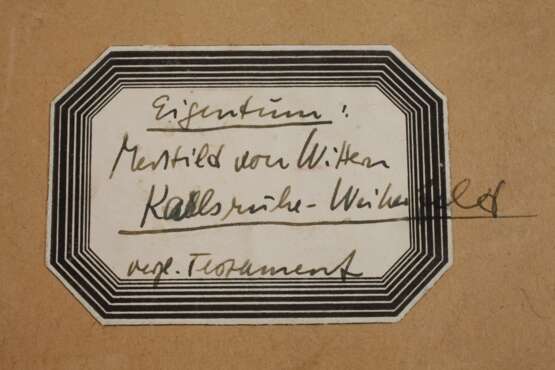 Eigentum:
von Wittern
Karlsruhe-Weiherfeld
vergl. Testament